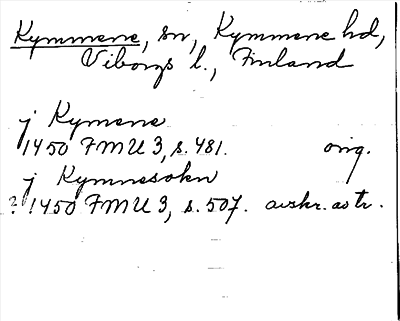 Kymmene, sn, Kymmene hd,
Viborgs l., Finland
j Kymene
1450 FMU 3, s. 481. orig.
j Kymnesokn
? 1450 FMU 3, s. 507. avskr. astr.